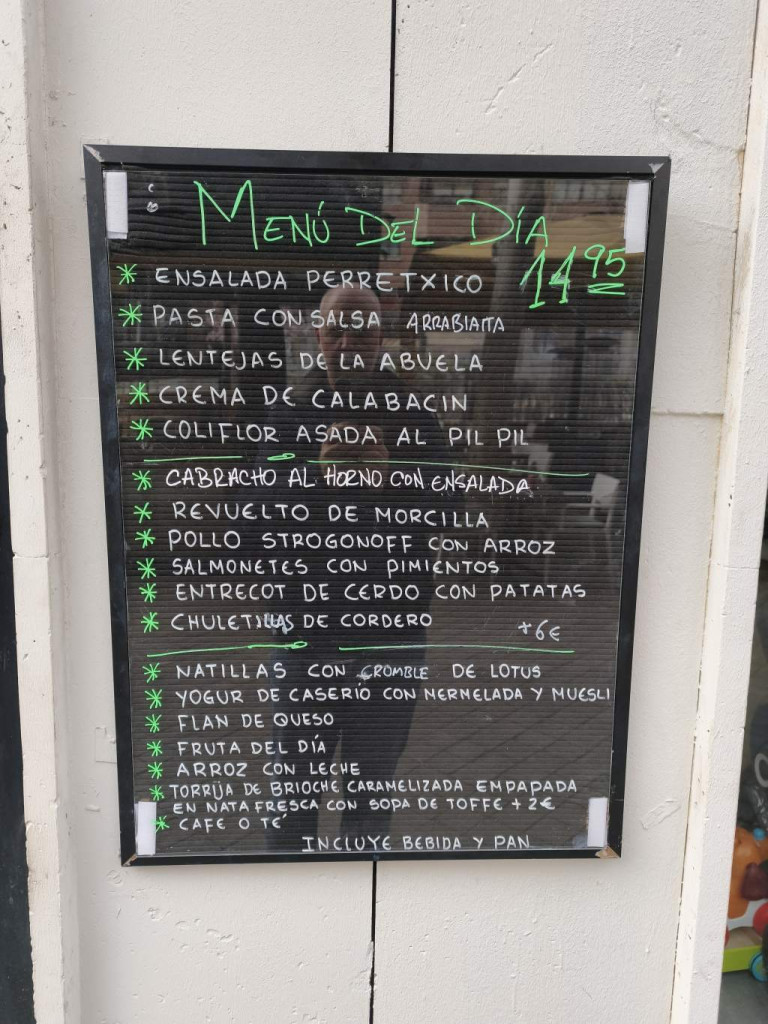 MENÚ DEL DÍA
14 95
* ENSALADA PERRETXICO
* PASTA CON SALSA ARRABIATTA
* LENTEJAS DE LA ABUELA
* CREMA DE CALABACIN
* COLIFLOR ASADA AL PIL PIL
* CABRACHO AL HORNO CON ENSALADA
* REVUELTO DE MORCILLA
* POLLO STROGONOFF CON ARROZ
* SALMONETES CON PIMIENTOS
* ENTRECOT DE CERDO CON PATATAS
* CHULETILLAS DE CORDERO +6€
* NATILLAS CON CROMBLE DE LOTUS
* YOGUR DE CASERÍO CON MERMELADA Y MUESLI
* FLAN DE QUESO
* FRUTA DEL DÍA
* ARROZ CON LECHE
* TORRIJA DE BRIOCHE CARAMELIZADA EMPAPADA
EN NATA FRESCA CON SOPA DE TOFFE + 2€
* CAFE O TÉ
INCLUYE BEBIDA Y PAN